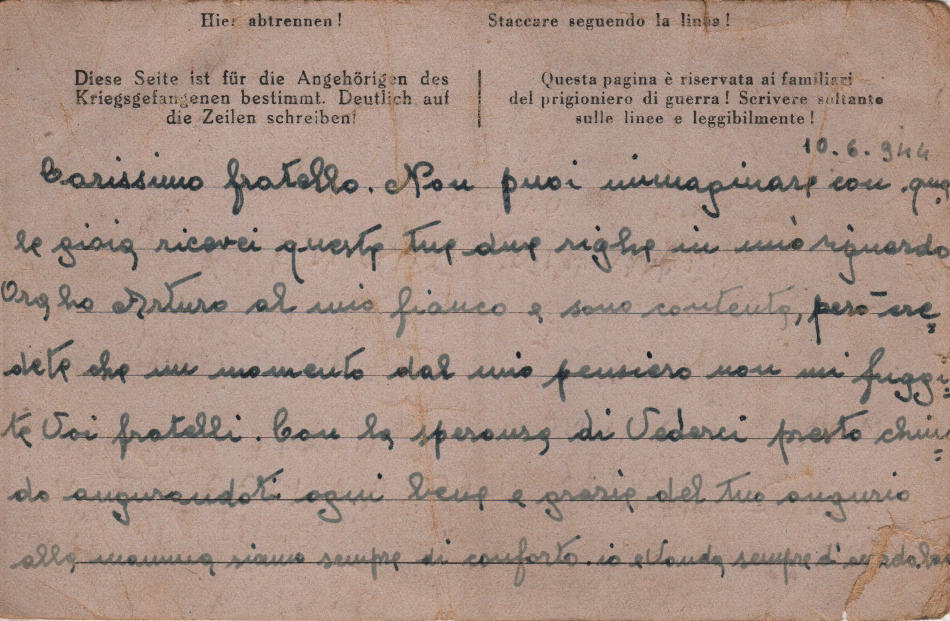 Hier abtrennen! Staccare seguendo la linea!
Diese Seite ist für die Angehörigen des
Kriegsgefangenen bestimmt. Deutlich auf
die Zeilen schreiben!
Questa pagina è riservata ai familiari
del prigioniero di guerra! Scrivere soltanto
sulle linee e leggibilmente!
10.6.944
Carissimo fratello. Non puoi immaginare con qua
le gioia ricevei queste tue due righe in mio riguardo
Ora ho Arturo al mio fianco e sono contenta, però cre=
dete che un momento dal mio pensiero non mi fuggi=
te Voi fratelli. Con la speranza di Vederci presto chiu=
do augurandoti ogni bene e grazie del tuo augurio
alla mamma siamo sempre di conforto. io e Vanda sempre d'